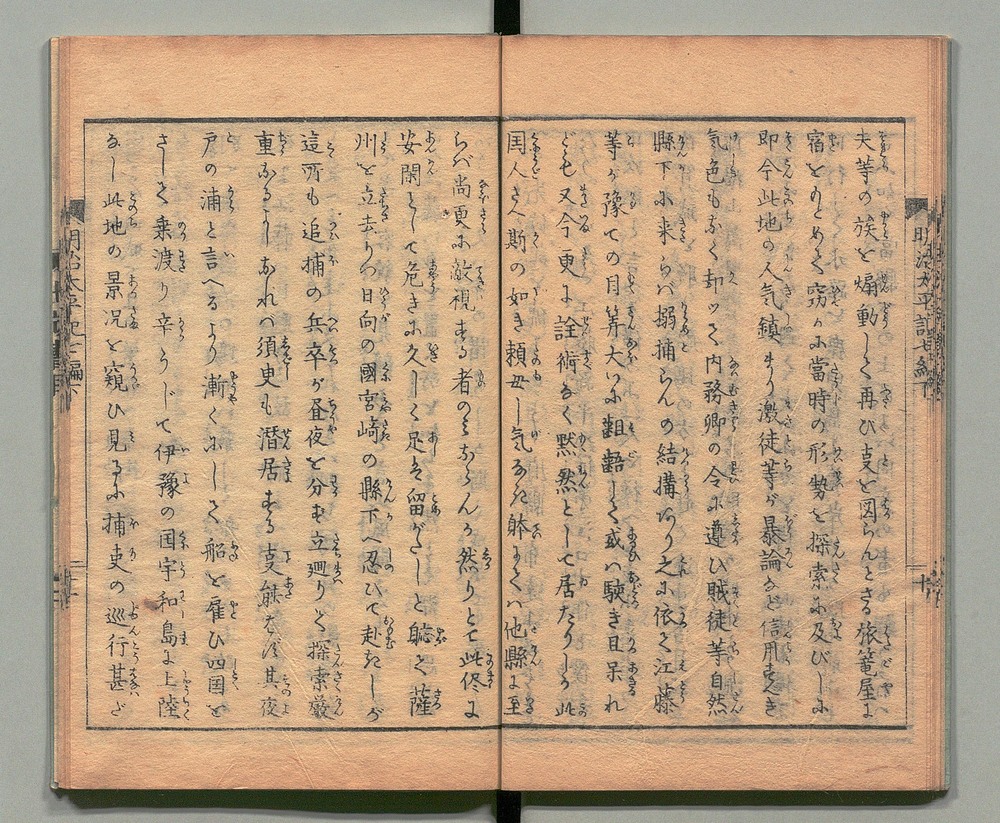 夫等の族を煽動して再び支を図らんとする旅篭屋に
宿をもとめて窃かに當時の形勢を探索に及びしに
即今此地の人気鎮まり激徒等が暴論など信用すべき
気色もなく却ッて内務卿の令に遵ひ賊徒等自然
縣下に来らバ搦捕らんの結構あり之に依て江藤
等が豫ての目算大いに齟齬して或ハ駭き且呆れ
ども又今更に詮術なく黙然として居たりしが此
国人さへ斯の如き頼母し気なき躰にてハ他縣に至
らバ尚更に敵視する者のミならんか然りとて此侭に
安閑として危きに久しく足を留がたしと脇て薩
州を立去りつ日向の國宮崎の縣下へ忍ひて赴きしが
這所も追捕の兵卒が昼夜を分ず立廻りて探索厳
重なるよしなれバ須臾も潜居する支能ハず其夜
戸の浦と言へるより漸くにして船を雇ひ四国を
さして乗渡り辛うじて伊豫の国宇和島に上陸
なし此地の景况を窺ひ見るに捕吏の巡行甚ど
明治太平記七編下
明治太平記七編下